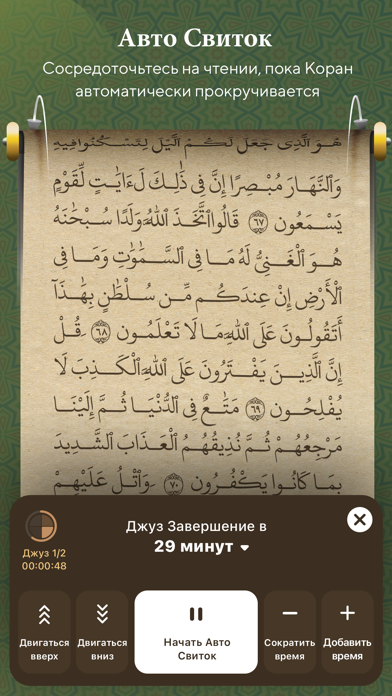 Авто Свиток
Сосредоточьтесь на чтении, пока Коран
автоматически прокручивается
هُوَ ٱلَّذِى جَعَلَ لَكُمُ ٱلَّيْلَ لِتَسْكُنُوا۟ فِيهِ
وَٱلنَّهَارَ مُبْصِرًا إِنَّ فِى ذَٰلِكَ لَـَٔايَٰتٍ لِّقَوْمٍ
يَسْمَعُونَ ٦٧ قَالُوا۟ ٱتَّخَذَ ٱللَّهُ وَلَدًا سُبْحَٰنَهُۥ
هُوَ ٱلْغَنِىُّ لَهُۥ مَا فِى ٱلسَّمَٰوَٰتِ وَمَا فِى
ٱلْأَرْضِ إِنْ عِندَكُم مِّن سُلْطَٰنٍۭ بِهَٰذَآ
أَتَقُولُونَ عَلَى ٱللَّهِ مَا لَا تَعْلَمُونَ ٦٨ قُلْ
إِنَّ ٱلَّذِينَ يَفْتَرُونَ عَلَى ٱللَّهِ ٱلْكَذِبَ لَا
يُفْلِحُونَ ٦٩ مَتَٰعٌ فِى ٱلدُّنْيَا ثُمَّ إِلَيْنَا
مَرْجِعُهُمْ ثُمَّ نُذِيقُهُمُ ٱلْعَذَابَ ٱلشَّدِيدَ
بِمَا كَانُوا۟ يَكْفُرُونَ ٧٠ وَٱتْلُ عَلَيْهِمْ
Джуз Завершение в
29 минут
Джуз 1/2
00:00:48
Двигаться
вверх
Двигаться
вниз
Начать Авто
Свиток
Сократить
время
Добавить
время